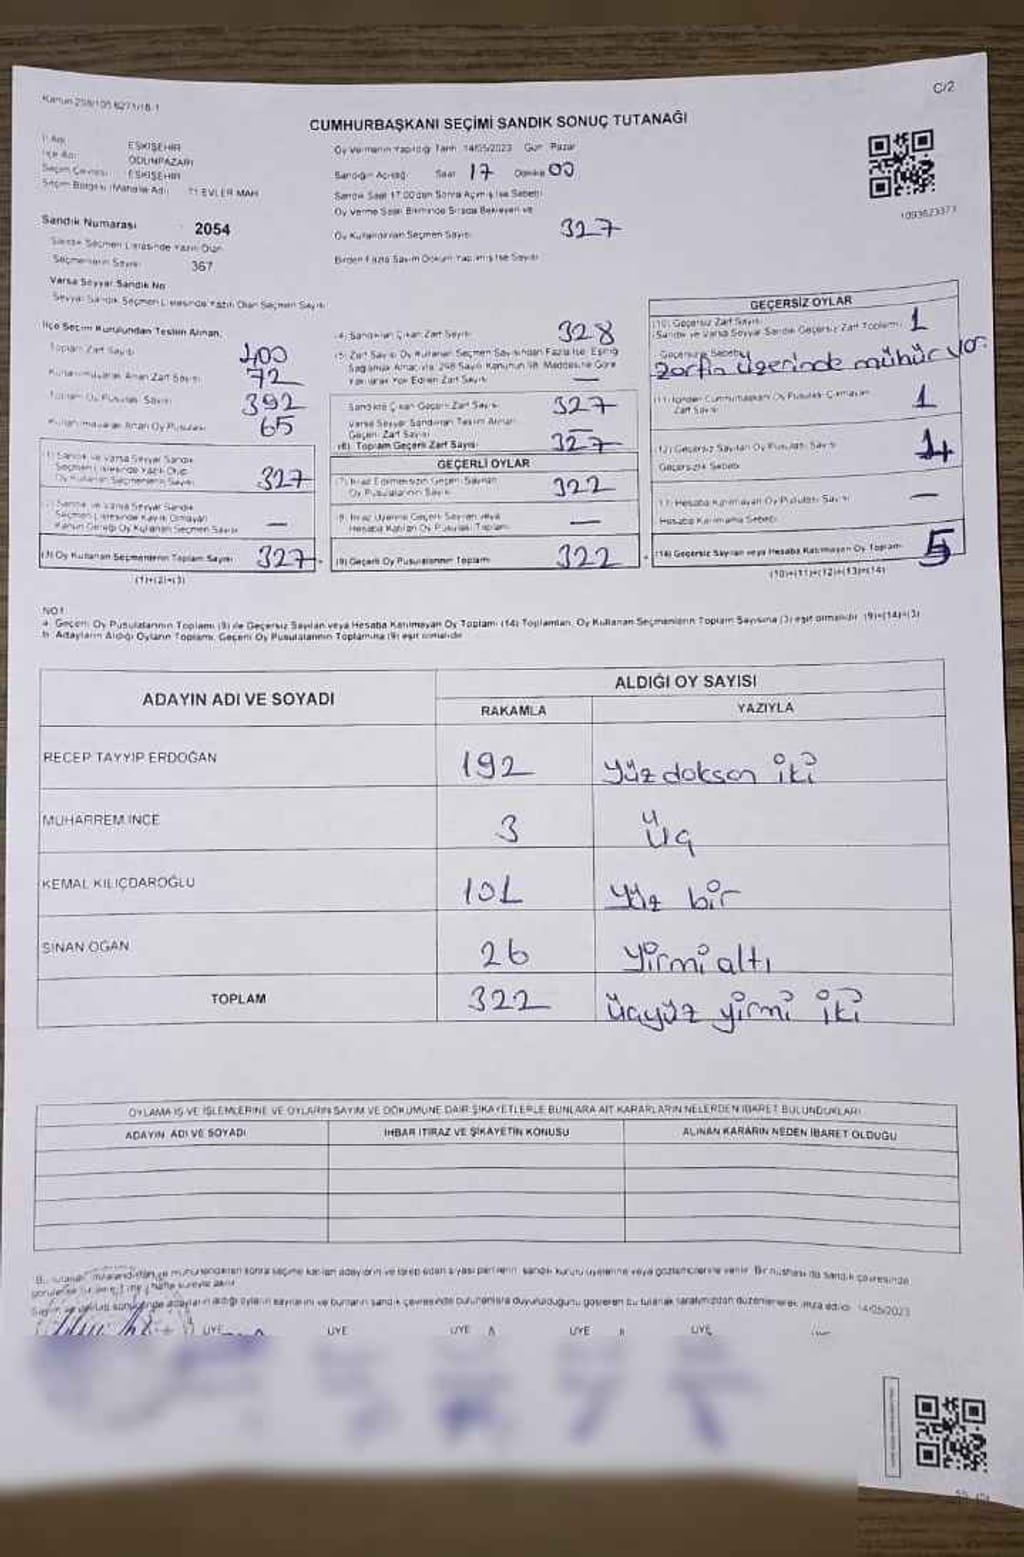 Kanun 298/105 6271/18-1
C/2
CUMHURBAŞKANI SEÇİMİ SANDIK SONUÇ TUTANAĞI
İl Adı: ESKİŞEHİR
İlçe Adı: ODUNPAZARI
Seçim Çevresi: ESKİŞEHİR
Seçim Bölgesi (Mahalle Adı): 71 EVLER MAH
Oy Vermenin Yapıldığı Tarih 14/05/2023 Gün Pazar
Sandığın Açıldığı Saat 17 Dakika 00
Sandık Saat 17:00'dan Sonra Açılmış İse Sebebi
Oy Verme Saati Bitiminde Sırada Bekleyen ve
Oy Kullandırılan Seçmen Sayısı 327
Birden Fazla Sayım Döküm Yapılmış İse Sayısı
1093623373
Sandık Numarası 2054
Sandık Seçmen Listesinde Yazılı Olan
Seçmenlerin Sayısı 367
Varsa Seyyar Sandık No
Seyyar Sandık Seçmen Listesinde Yazılı Olan Seçmen Sayısı
İlçe Seçim Kurulundan Teslim Alınan;
Toplam Zarf Sayısı 400
Kullanılmayarak Artan Zarf Sayısı 72
Toplam Oy Pusulası Sayısı 392
Kullanılmayarak Artan Oy Pusulası 65
(1) Sandık ve Varsa Seyyar Sandık
Seçmen Listesinde Yazılı Olup
Oy Kullanan Seçmenlerin Sayısı 327
(2) Sandık ve Varsa Seyyar Sandık
Seçmen Listesinde Kayıtlı Olmayan
Kanun Gereği Oy Kullanan Seçmen Sayısı —
(3) Oy Kullanan Seçmenlerin Toplam Sayısı 327
(1)+(2)=(3)
(4) Sandıktan Çıkan Zarf Sayısı 328
(5) Zarf Sayısı Oy Kullanan Seçmen Sayısından Fazla İse, Eşitliği
Sağlamak Amacıyla 298 Sayılı Kanunun 98. Maddesine Göre
Yakılarak Yok Edilen Zarf Sayısı —
Sandıkta Çıkan Geçerli Zarf Sayısı 327
Varsa Seyyar Sandıktan Teslim Alınan
Geçerli Zarf Sayısı
(6) Toplam Geçerli Zarf Sayısı 327
GEÇERLİ OYLAR
(7) İtiraz Edilmeksizin Geçerli Sayılan
Oy Pusulalarının Sayısı 322
(8) İtiraz Üzerine Geçerli Sayılan veya
Hesaba Katılan Oy Pusulası Toplamı —
(9) Geçerli Oy Pusulalarının Toplamı 322
GEÇERSİZ OYLAR
(10) Geçersiz Zarf Sayısı
(Sandık ve Varsa Seyyar Sandık Geçersiz Zarf Toplamı) 1
Geçersizlik Sebebi
zarfın üzerinde mühür yok
(11) İçinden Cumhurbaşkanı Oy Pusulası Çıkmayan
Zarf Sayısı 1
(12) Geçersiz Sayılan Oy Pusulası Sayısı 4
Geçersizlik Sebebi
Hesaba Katılmayan Oy Pusulası Sayısı —
Hesaba Katılmama Sebebi
(14) Geçersiz Sayılan veya Hesaba Katılmayan Oy Toplamı 5
(10)+(11)+(12)+(13)=(14)
NOT
a. Geçerli Oy Pusulalarının Toplamı (9) ile Geçersiz Sayılan veya Hesaba Katılmayan Oy Toplamı (14) Toplamları, Oy Kullanan Seçmenlerin Toplam Sayısına (3) eşit olmalıdır. (9)+(14)=(3)
b. Adayların Aldığı Oyların Toplamı, Geçerli Oy Pusulalarının Toplamına (9) eşit olmalıdır.
ADAYIN ADI VE SOYADI
ALDIĞI OY SAYISI
RAKAMLA YAZIYLA
RECEP TAYYİP ERDOĞAN 192 yüz doksan iki
MUHARREM İNCE 3 üç
KEMAL KILIÇDAROĞLU 101 yüz bir
SİNAN OĞAN 26 yirmi altı
TOPLAM 322 üçyüz yirmi iki
OYLAMA İŞ VE İŞLEMLERİNE VE OYLARIN SAYIM VE DÖKÜMÜNE DAİR ŞİKAYETLERLE BUNLARA AİT KARARLARIN NELERDEN İBARET BULUNDUKLARI
ADAYIN ADI VE SOYADI İHBAR İTİRAZ VE ŞİKAYETİN KONUSU ALINAN KARARIN NEDEN İBARET OLDUĞU
Bu tutanak imzalandıktan ve mühürlendikten sonra seçime katılan adayların ve talep eden siyasi partilerin sandık kurulu üyelerine veya gözlemcilerine verilir. Bir nüshası da sandık çevresinde
hafta süreyle asılır
sonucunda adayların aldığı oyların sayılarını ve bunların sandık çevresinde bulunanlara duyurulduğunu gösteren bu tutanak tarafımızdan düzenlenerek imza edildi 14/05/2023
ÜYE ÜYE ÜYE ÜYE ÜYE